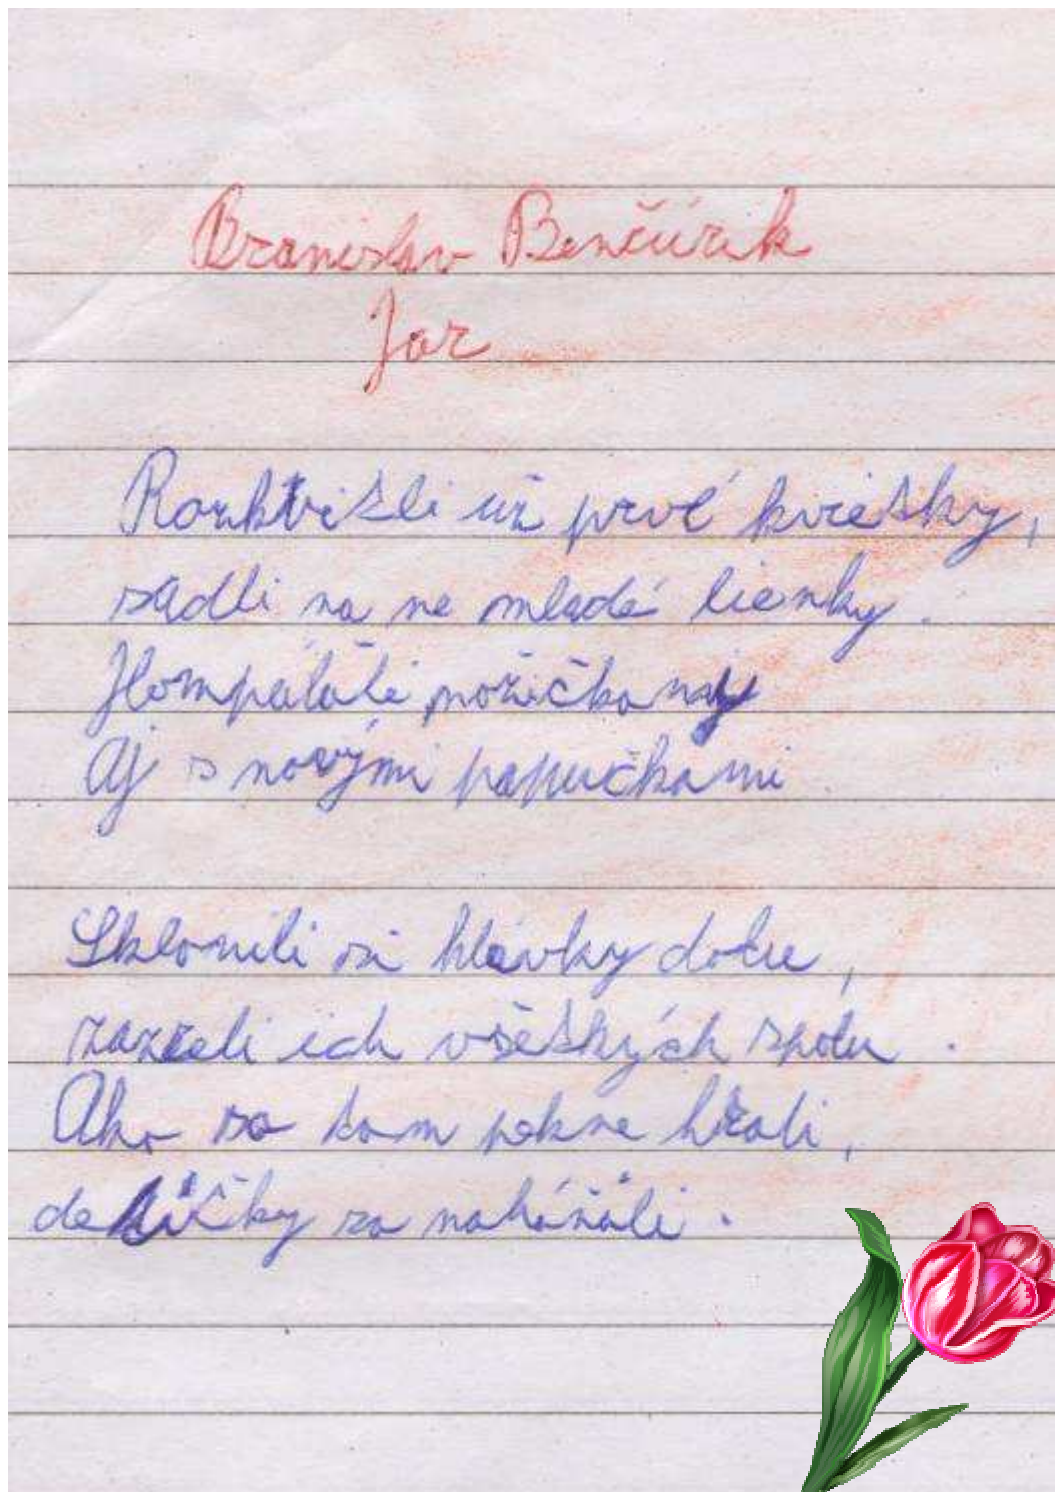 Branislav Benčúrik
Jar
Rozkvitli už prvé kvietky,
sadli na ne mladé lienky.
Hompálali nožičkamy
Aj s novými papučkami
Sklonili si hlávky dolu,
zazreli ich všetkých spolu.
Ako sa tam pekne hrali,
detičky sa naháňali.